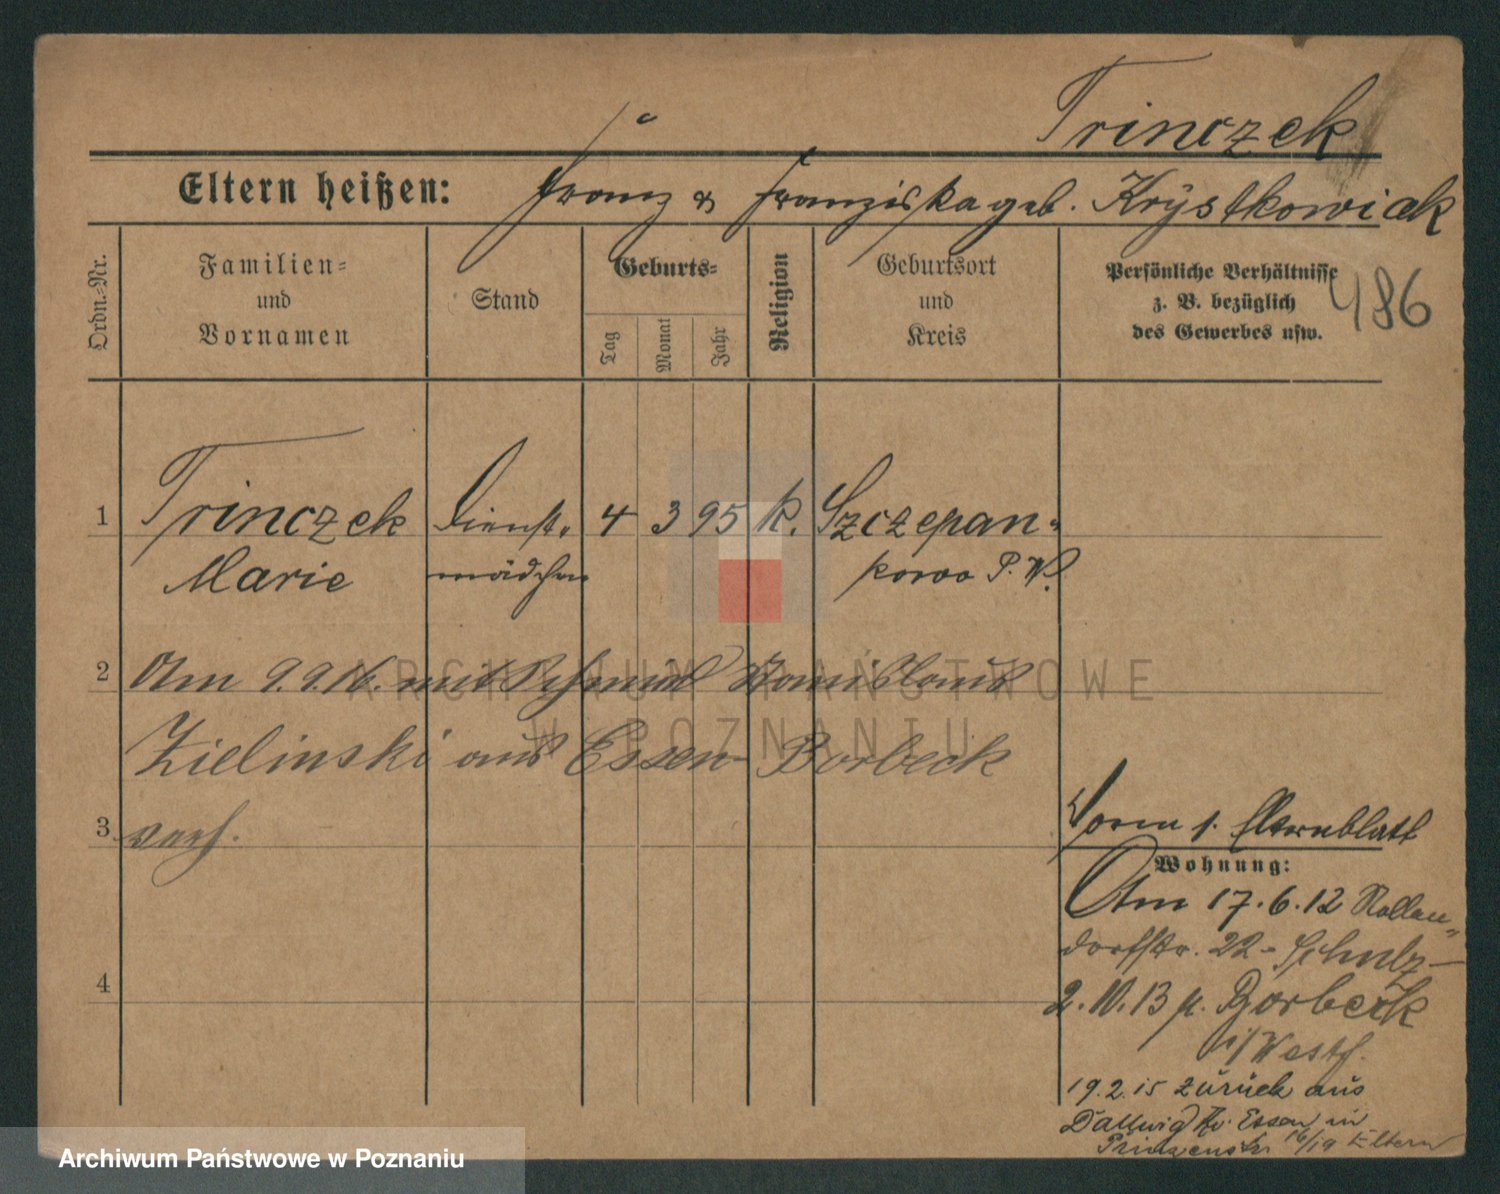 Trinczek
Eltern heißen: Franz & Franziska geb. Krystkowiak
Ordn.-Nr.
Familien-
und
Vornamen
Stand
Geburts-
Tag
Monat
Jahr
Religion
Geburtsort
und
Kreis
Persönliche Verhältnisse
z. B. bezüglich
des Gewerbes usw.
486
1 Trinczek Dienst- 4 3 95 k. Szczepan-
Marie mädchen kowo P. W.
2 Am 9.9.16. mit Schmied
Zielinski aus Essen-Borbeck
3 verh.
Vorm 1. Elternblatt
Wohnung:
Am 17.6.12 Nollen-
dorfstr. 22 - Schulz -
2.10.13 n. Borbeck
i/Westf.
19.2.15 zurück aus
Dallwig Kr. Essen in
Prinzenstr. 16/19 Eltern
4
ARCHIWUM PAŃSTWOWE
W POZNANIU
Archiwum Państwowe w Poznaniu